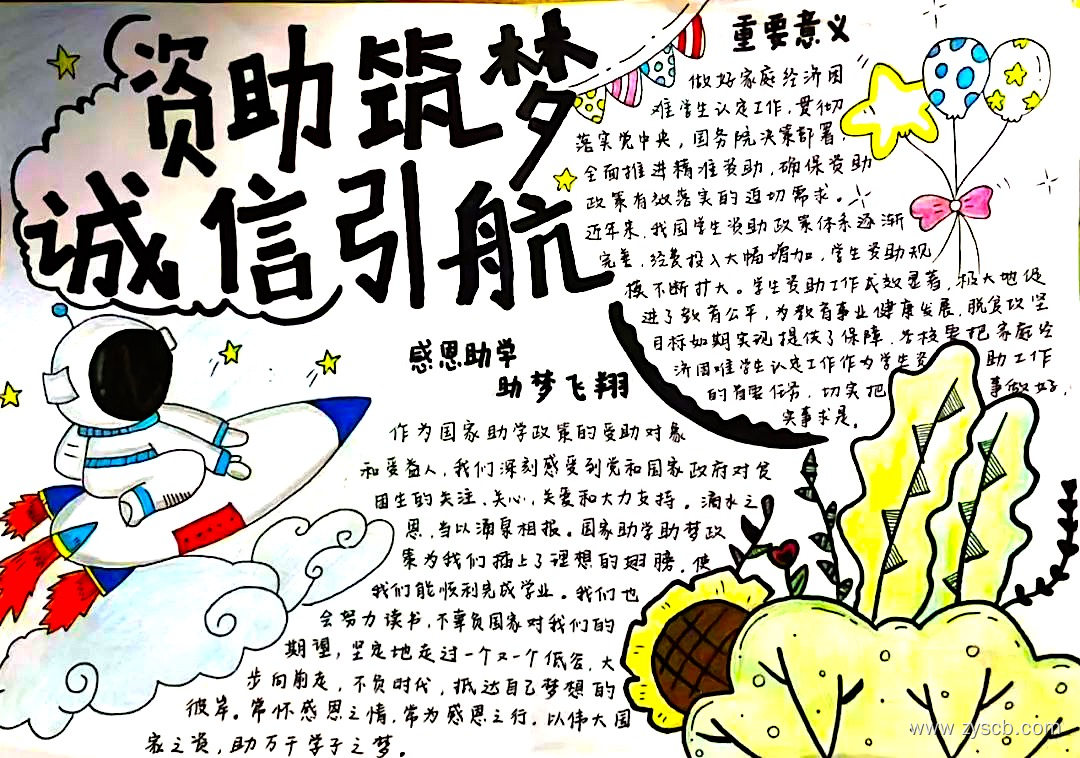 资助筑梦
诚信引航
重要意义
做好家庭经济困
难学生认定工作，贯彻
落实党中央，国务院决策部署，
全面推进精准资助，确保资助
政策有效落实的迫切需求。
近年来，我国学生资助政策体系逐渐
完善，经费投入大幅增加，学生资助规
模不断扩大。学生资助工作成效显著，极大地促
进了教育公平，为教育事业健康发展，脱贫攻坚
目标如期实现提供了保障，学校要把家庭经
济困难学生认定工作作为学生资 助工作
的首要任务，切实把 事做好，
实事求是。
感恩助学
助梦飞翔
作为国家助学政策的受助对象
和受益人，我们深刻感受到党和国家政府对贫
困生的关注、关心，关爱和大力支持。滴水之
恩，当以涌泉相报。国家助学助梦政
策为我们插上了理想的翅膀，使
我们能顺利完成学业。我们也
会努力读书，不辜负国家对我们的
期望，坚定地走过一个又一个低谷，大
步向前走，不负时代，抵达自己梦想的
彼岸。常怀感恩之情，常为感恩之行。以伟大国
家之资，助万千学子之梦。
www.zyscb.com